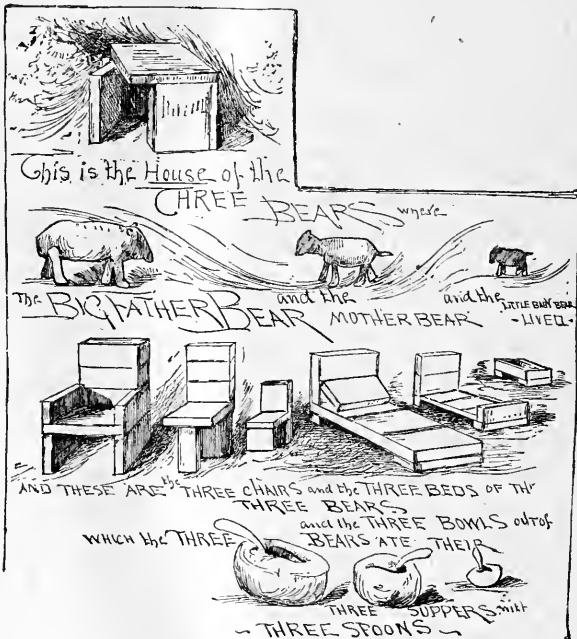 This is the House of the
THREE BEARS where
The BIG FATHER BEAR and the MOTHER BEAR and the LITTLE BABY BEAR
- LIVED -
AND THESE ARE the THREE CHAIRS and the THREE BEDS OF THE
THREE BEARS
and the THREE BOWLS out of
WHICH the THREE BEARS ATE THEIR
THREE SUPPERS with
~ THREE SPOONS ~